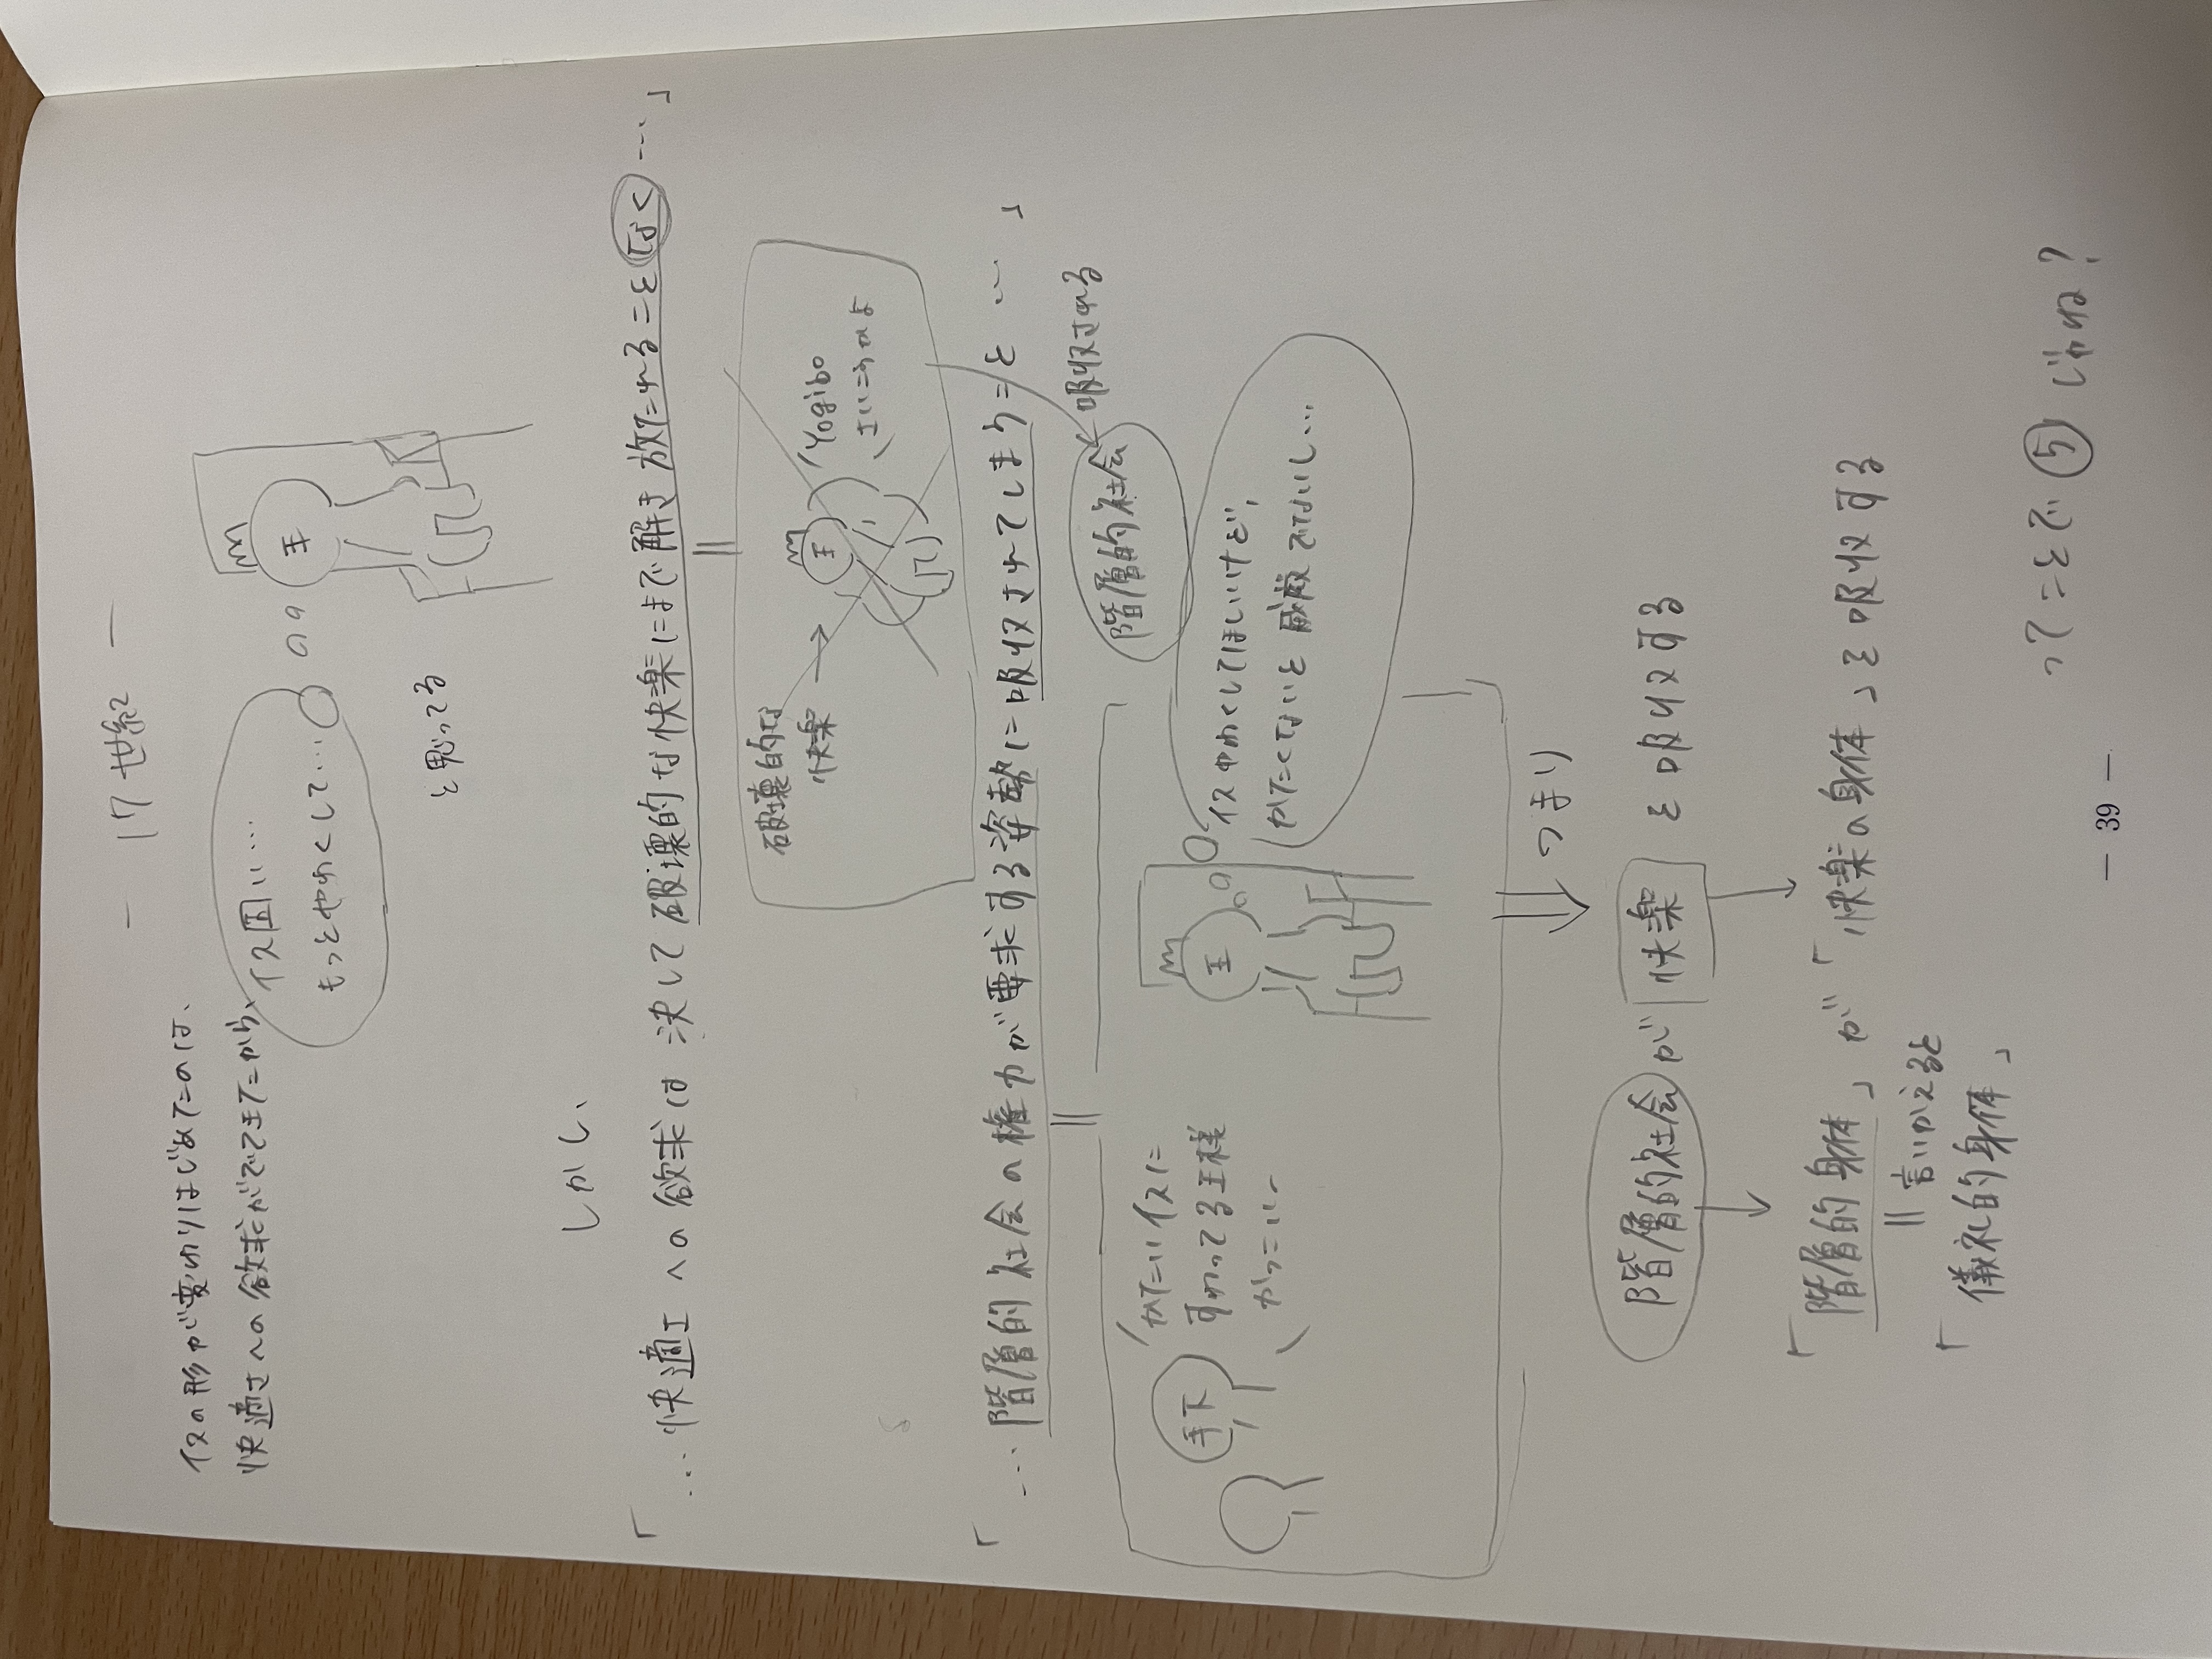 ― 17世紀 ―
イスの形が変わりはじめたのは、
快適さへの欲求がでてきたから
イス固い…
もっとやわくして…
王
と思ってる
しかし、
「…快適さへの欲求は決して破壊的な快楽にまで解き放たれることなく…」
破壊的な
快楽→
王
Yogibo
さいこうのよ
「…階層的社会の権力が要求する姿勢に吸収されてしまうこと…」
階層的社会
吸収される
手下
かたいイスに
すわってる王様
かっこいい
王
イスやわくしてほしいけど、
かたくないと威厳でないし…
つまり
階層的社会が快楽を吸収する
「階層的身体」が「快楽の身体」を吸収する
言いかえると
「儀礼的身体」
ってことで⑤じゃね?
― 39 ―